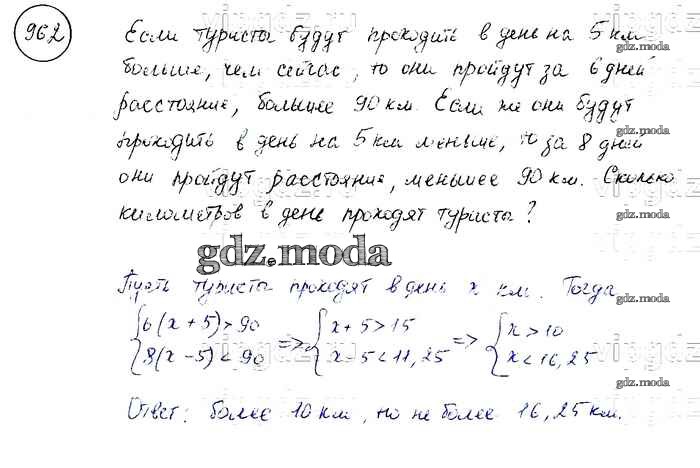 962
Если туристы будут проходить в день на 5 км
больше, чем сейчас, то они пройдут за 6 дней
расстояние, большее 90 км. Если же они будут
проходить в день на 5 км меньше, то за 8 дней
они пройдут расстояние, меньшее 90 км. Сколько
километров в день проходят туристы?
gdz.moda
Пусть туристы проходят в день x км. Тогда
{6(x+5)>90 => {x+5>15 => {x>10
{8(x-5)<90 {x-5<11,25 {x<16,25
gdz.moda
Ответ: более 10 км, но не более 16,25 км.
gdz.moda